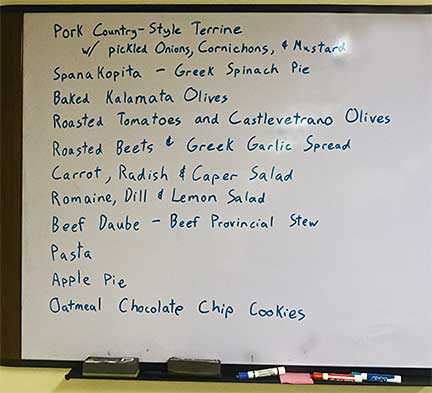 Pork Country-Style Terrine
w/ pickled Onions, Cornichons, & Mustard
Spanakopita - Greek Spinach Pie
Baked Kalamata Olives
Roasted Tomatoes and Castlevetrano Olives
Roasted Beets & Greek Garlic Spread
Carrot, Radish & Caper Salad
Romaine, Dill & Lemon Salad
Beef Daube - Beef Provincial Stew
Pasta
Apple Pie
Oatmeal Chocolate Chip Cookies